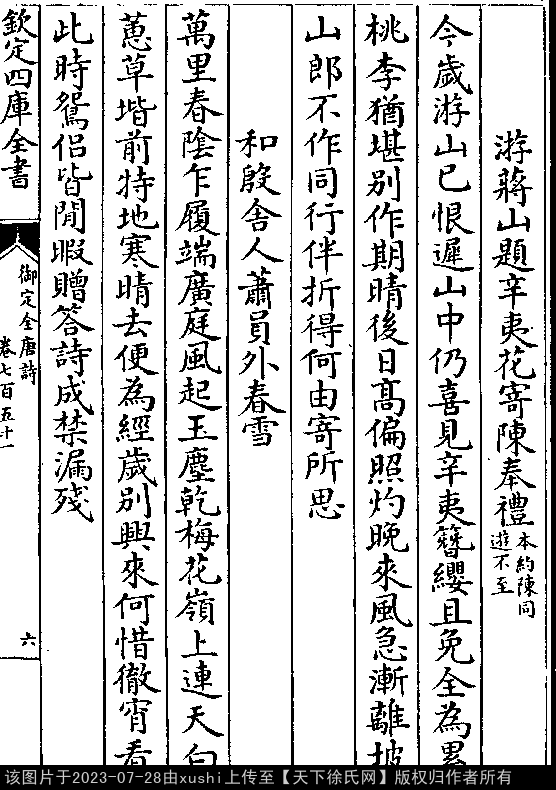 游蔣山題辛夷花寄陳奉禮本約陳同遊不至
今歲游山已恨遲山中仍喜見辛夷簪纓且免全為累
桃李猶堪别作期晴後日髙偏照灼晚來風急漸離披
山郎不作同行伴折得何由寄所思
和殷舍人蕭員外春雪
萬里春陰乍履端廣庭風起玉塵乾梅花嶺上連天白
蕙草堦前特地寒晴去便為經歲别興來何惜徹宵看
此時鴛侣皆閒暇贈答詩成禁漏殘
欽定四庫全書
御定全唐詩
卷七百五十一
六
该图片于2023-07-28由xushi上传至【天下徐氏网】版权归作者所有